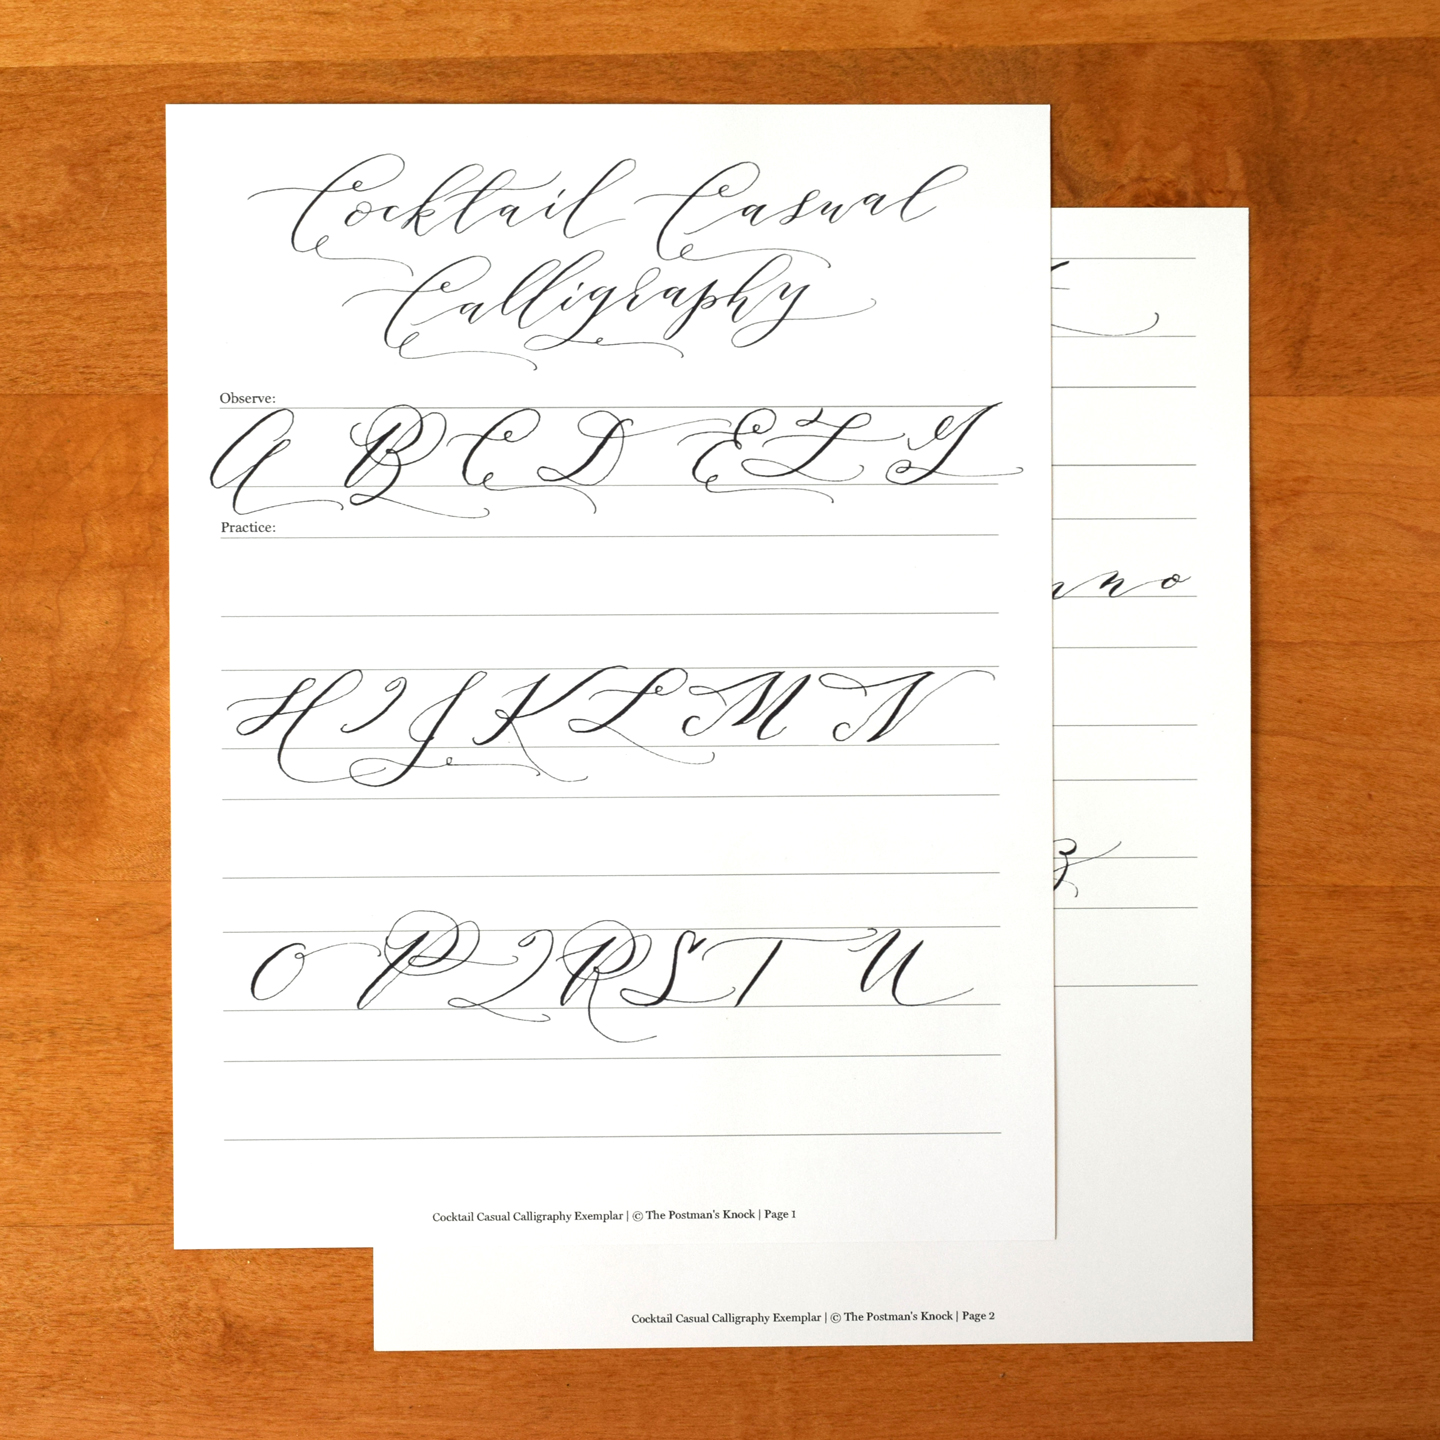 Cocktail Casual
Calligraphy
Observe:
A B C D E F G
Practice:
H I J K L M N
O P Q R S T U
Cocktail Casual Calligraphy Exemplar | © The Postman's Knock | Page 1
n o
z
Cocktail Casual Calligraphy Exemplar | © The Postman's Knock | Page 2